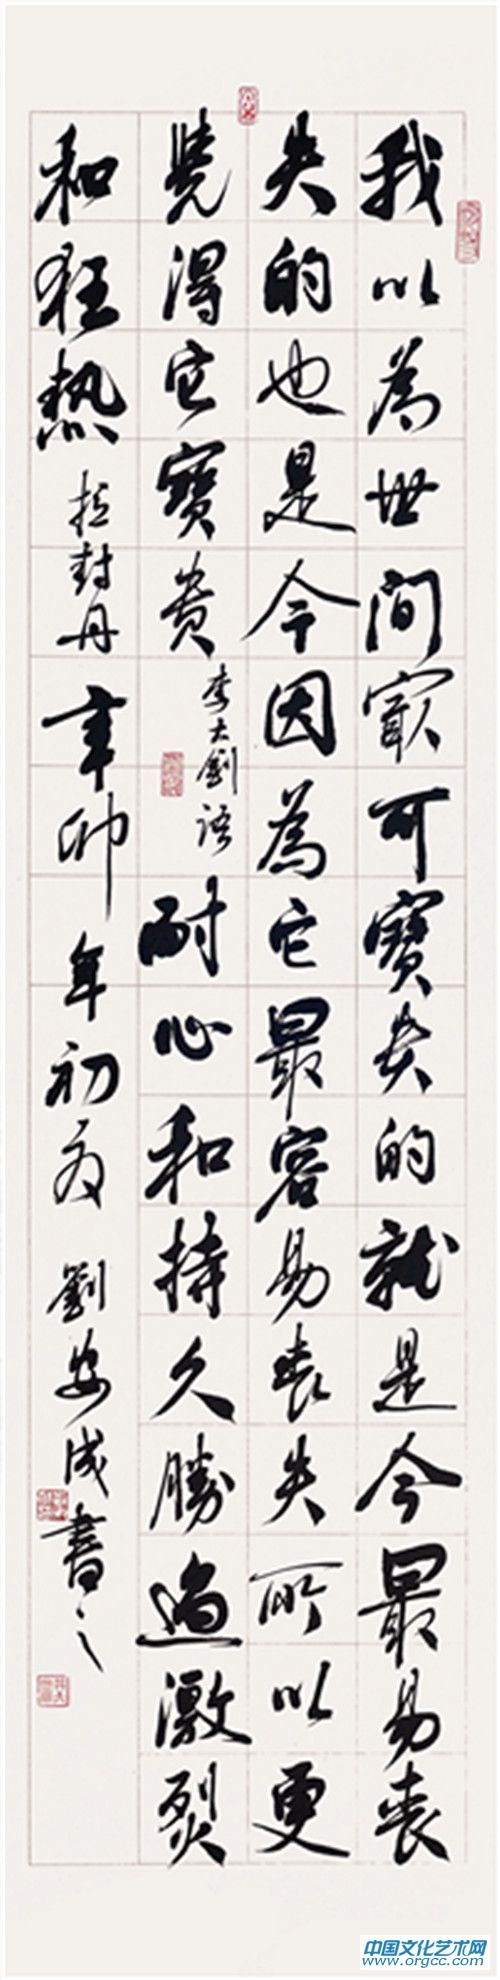 我以為世间寂可寶贵的就是今最易丧
失的也是今因為它最容易丧失所以更
覺得它寶贵 李大釗语 耐心和持久勝過激烈
和狂热 拉封丹 辛卯年初夏 劉安成書之
中国文化艺术网
www.orgcc.com